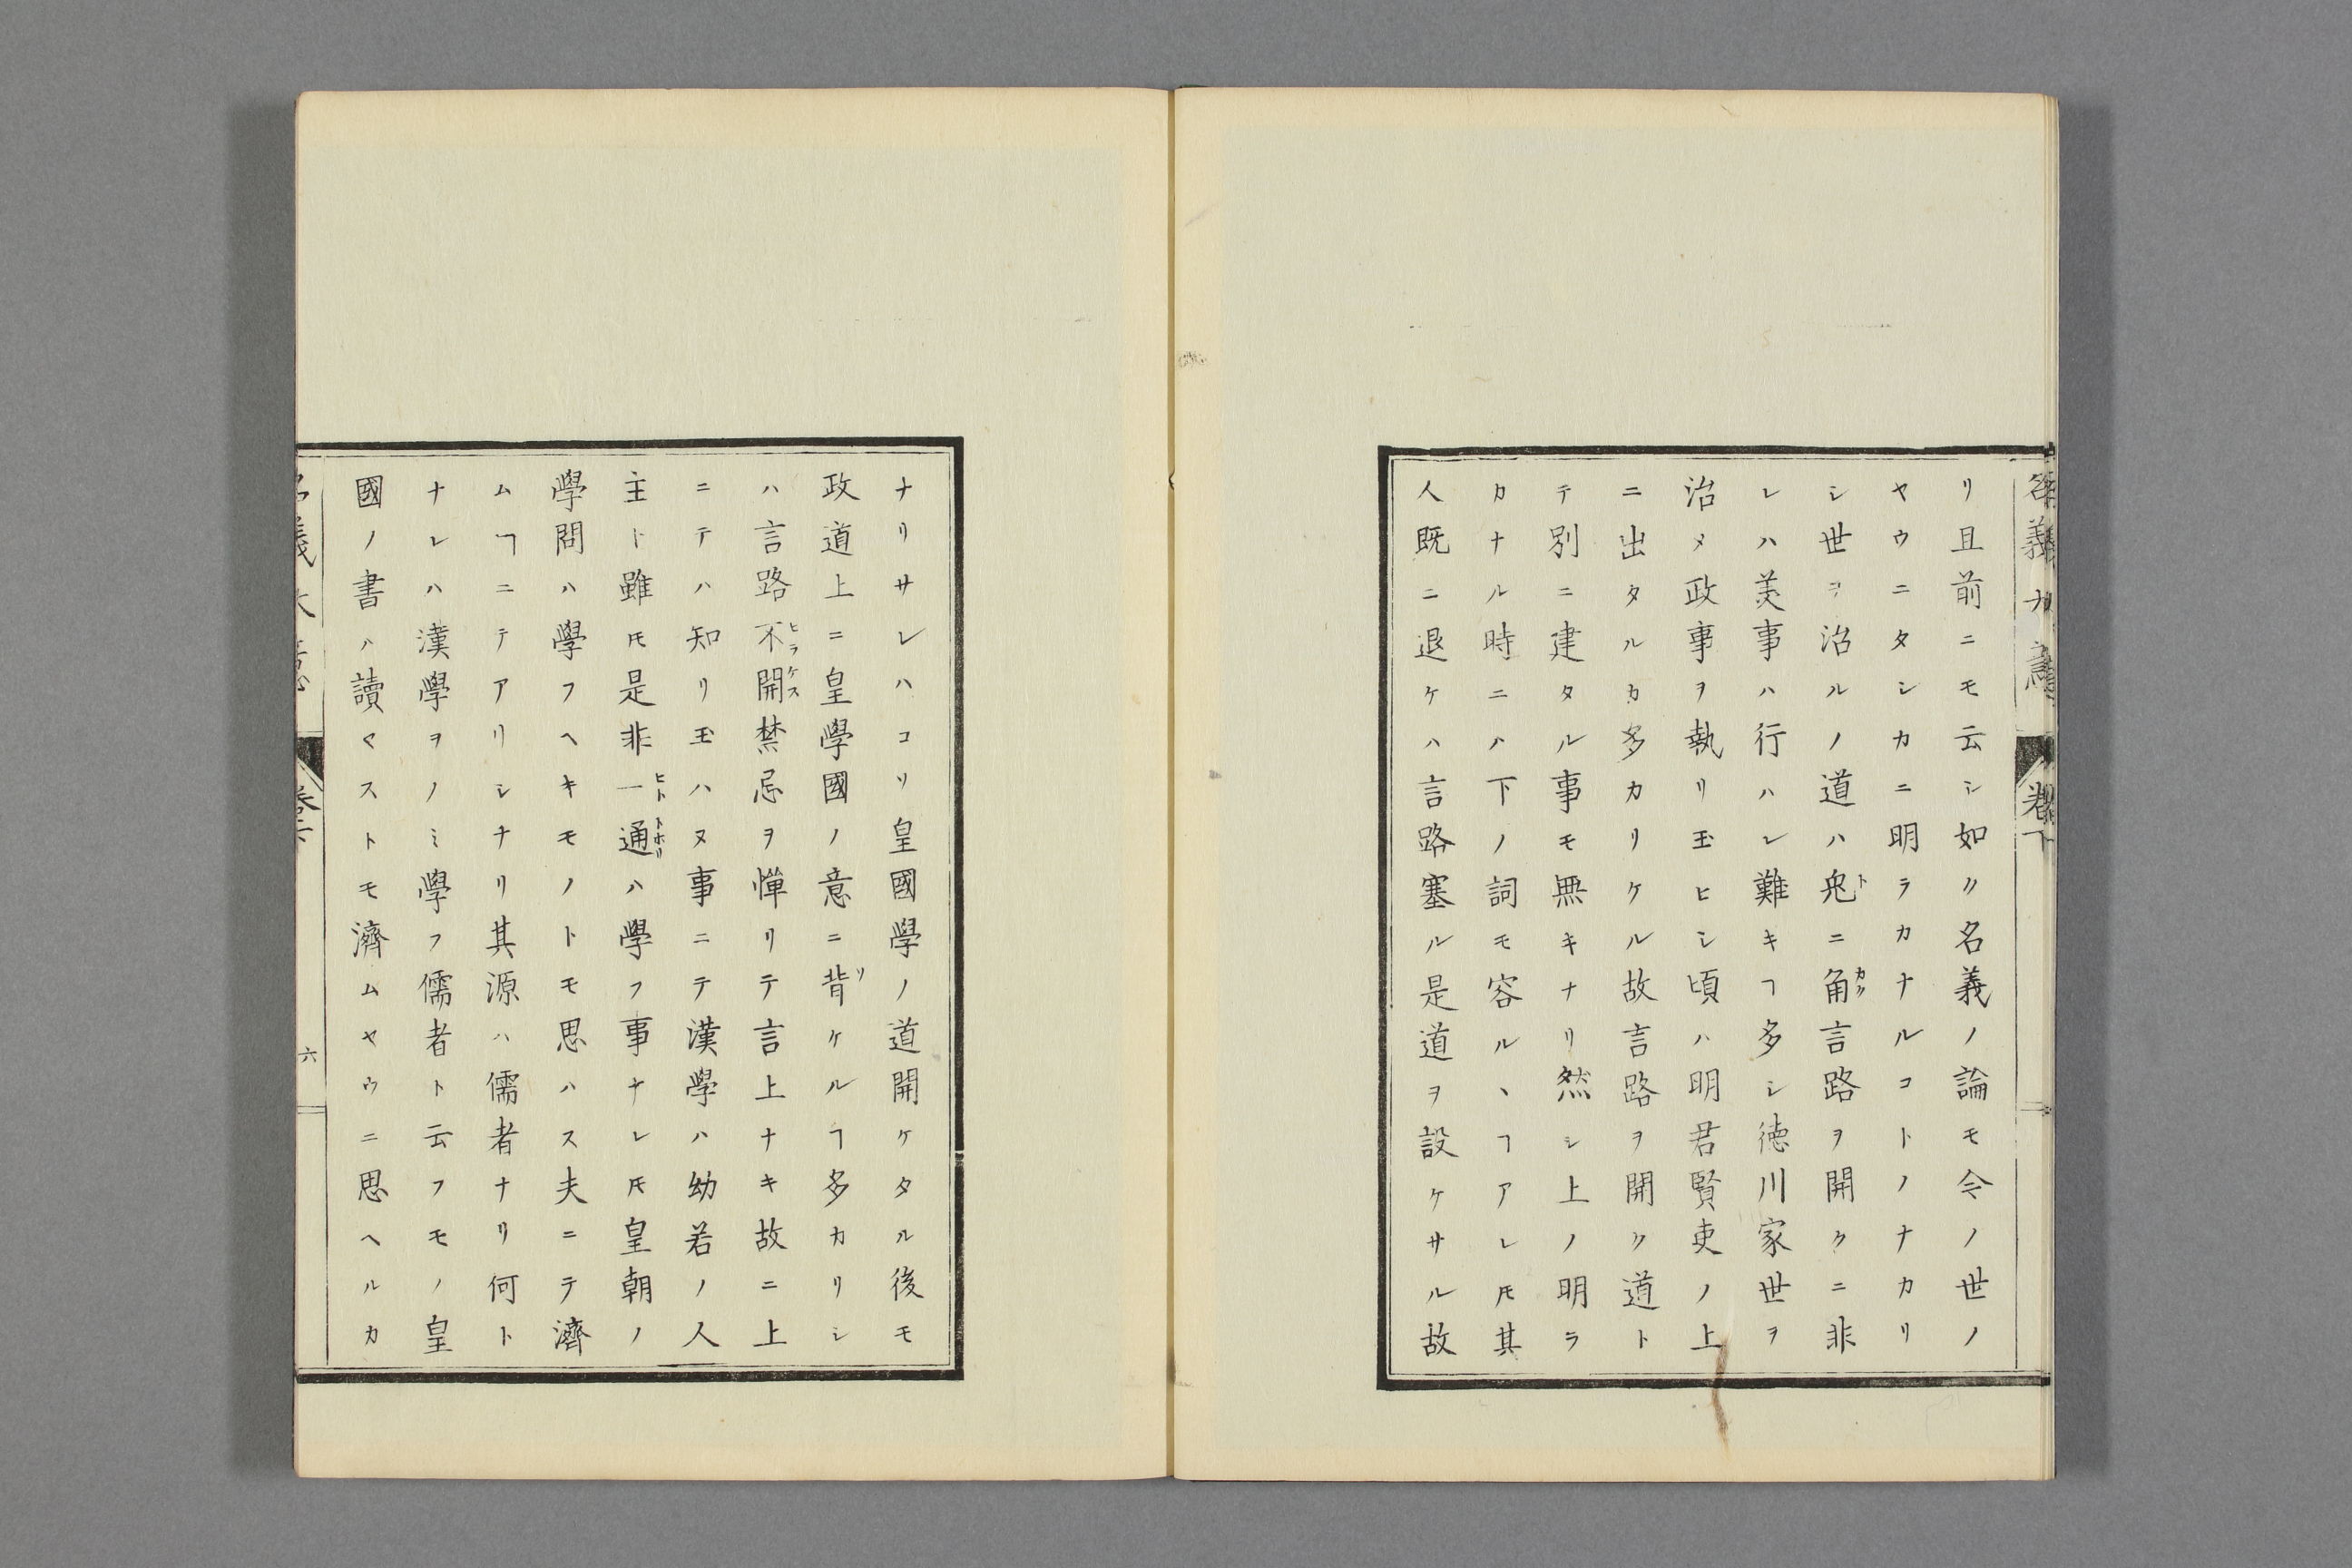 リ且前ニモ云シ如ク名義ノ論モ今ノ世ノ
ヤウニタシカニ明ラカナルコトノナカリ
シ世ヲ治ルノ道ハ兎ニ角言路ヲ開クニ非
ト
カク
レハ美事ハ行ハレ難キヿ多シ徳川家世ヲ
治メ政事ヲ執リ玉ヒシ頃ハ明君賢吏ノ上
ニ出タルカ多カリケル故言路ヲ開ク道ト
テ別ニ建タル事モ無キナリ然シ上ノ明ラ
カナル時ニハ下ノ詞モ容ルヽヿアレ𪜈其
人既ニ退ケハ言路塞ル是道ヲ設ケサル故
ナリサレハコリ皇國學ノ道開ケタル後モ
政道上ニ皇學國ノ意ニ背ケルヿ多カリシ
リ
ハ言路不開禁忌ヲ憚リテ言上ナキ故ニ上
ヒラケス
ニテハ知リ玉ハヌ事ニテ漢學ハ幼若ノ人
主ト雖𪜈是非一通ハ學フ事ナレ𪜈皇朝ノ
ヒトトホリ
學問ハ學フヘキモノトモ思ハス夫ニテ濟
ムヿニテアリシナリ其源ハ儒者ナリ何ト
ナレハ漢學ヲノミ學フ儒者ト云フモノ皇
國ノ書ハ讀マストモ濟ムヤウニ思ヘルカ
六